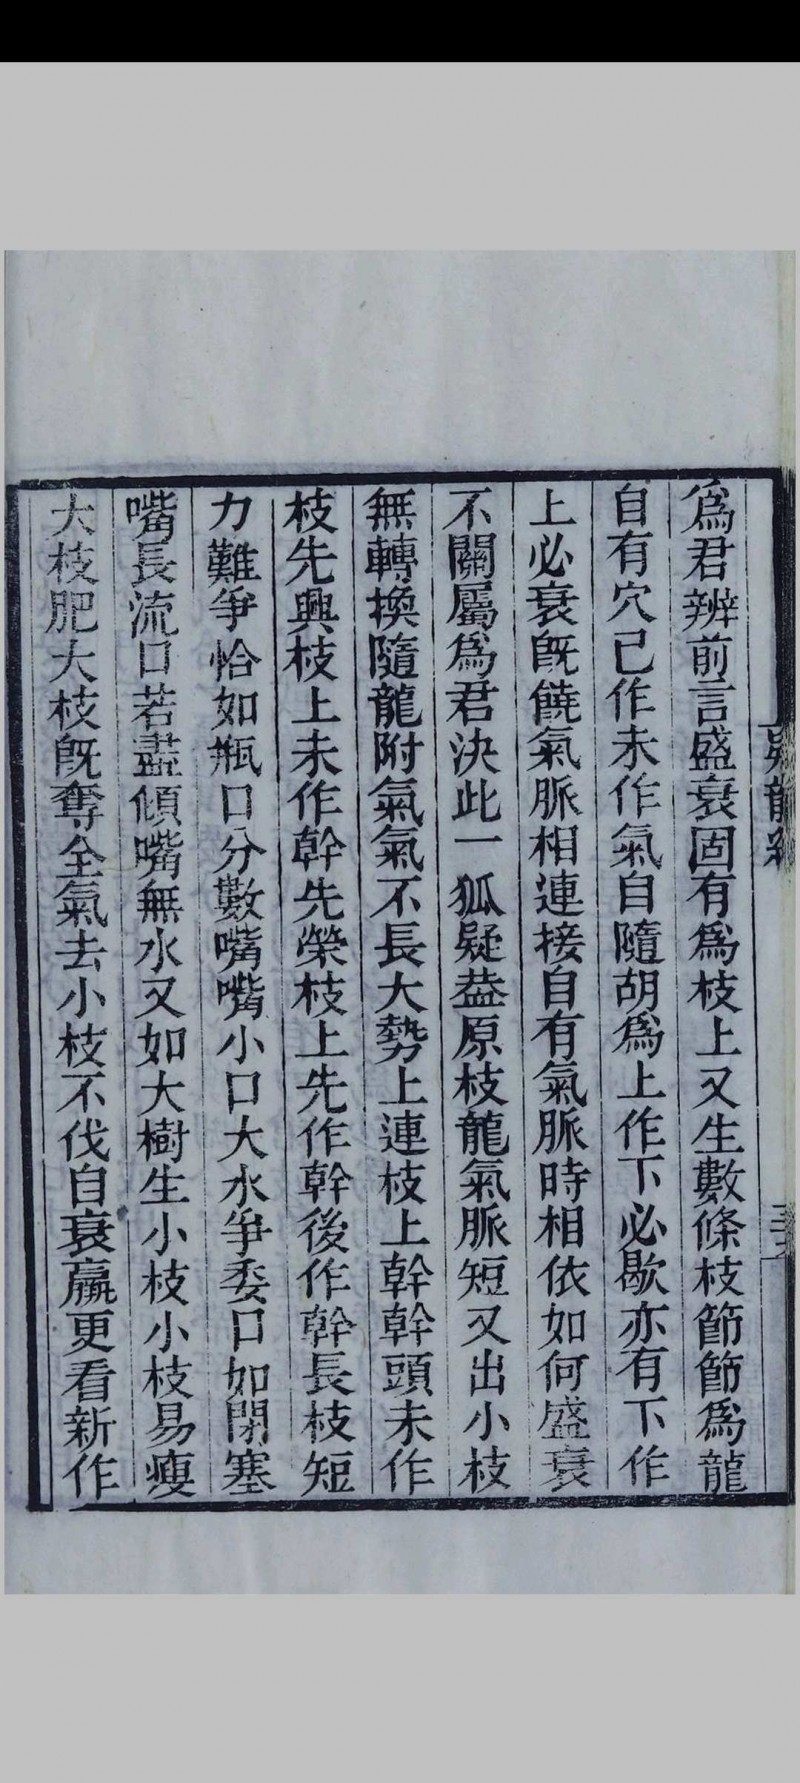 爲君辨前言盛衰固有爲枝上又生數條枝節節爲龍
自有穴已作未作氣自隨胡爲上作下必歇亦有下作
上必衰旣饒氣脈相連接自有氣脈時相依如何盛衰
不關屬爲君決此一狐疑葢原枝龍氣脈短又出小枝
無轉換隨龍附氣氣不長大勢上連枝上幹幹頭未作
枝先興枝上未作幹先榮枝上先作幹後作幹長枝短
力難爭恰如瓶口分數嘴嘴小口大水爭委口如閉塞
嘴長流口若盡傾嘴無水又如大樹生小枝小枝易瘦
大枝肥大枝旣奪全氣去小枝不伐自衰羸更看新作